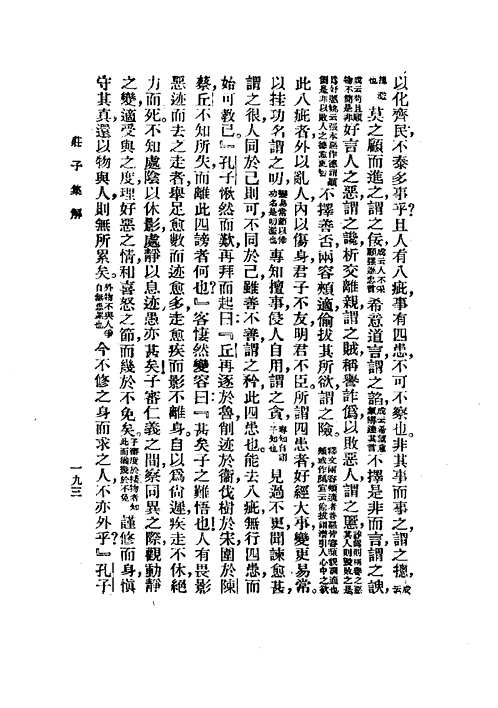 以化齊民，不泰多事乎？且人有八疵，事有四患，不可不察也。非其事而事之，謂之摠。成云
莫之顧而進之，謂之佞。成云人不采顧強進忠言 希意道言，謂之諂。 不擇是非而言，謂之諛。
好言人之惡，謂之讒。析交離親，謂之賊。稱譽詐僞以敗惡人，謂之慝。
不擇善否，兩容頰適，偷拔其所欲，謂之險。
此八疵者，外以亂人，內以傷身，君子不友，明君不臣。所謂四患者：好經大事，變更易常，
以挂功名，謂之叨。 專知擅事，侵人自用，謂之貪。 見過不更，聞諫愈甚，
謂之很。人同於己則可，不同於己，雖善不善，謂之矜。此四患也。能去八疵，無行四患，而
始可教已。』孔子愀然而歎，再拜而起曰：『丘再逐於魯，削迹於衞，伐樹於宋，圍於陳
蔡。丘不知所失，而離此四謗者何也？』客悽然變容曰：『甚矣子之難悟也！人有畏影
惡迹而去之走者，舉足愈數而迹愈多，走愈疾而影不離身，自以爲尚遲，疾走不休，絕
力而死。不知處陰以休影，處靜以息迹，愚亦甚矣！子審仁義之間，察同異之際，觀動靜
之變，適受與之度，理好惡之情，和喜怒之節，而幾於不免矣。 謹修而身，慎
守其真，還以物與人，則無所累矣。外物不與人爭自無患累也 今不修之身而求之人，不亦外乎？』孔子
莊子集解
一九三